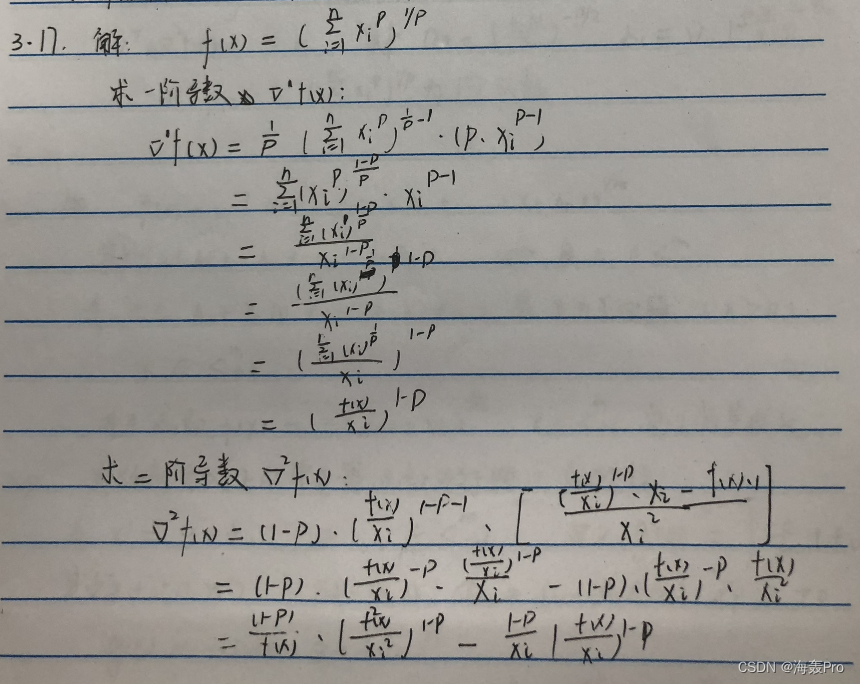 3.17. 解: f(x) = ( ∑_{i=1}^{n} x_i^P )^{1/P}
求一阶导数 ∇'f(x):
∇'f(x) = 1/P ( ∑_{i=1}^{n} x_i^P )^{1/P - 1} · (P · x_i^{P-1})
= ∑_{i=1}^{n} (x_i^P)^{(1-P)/P} · x_i^{P-1}
= ∑_{i=1}^{n} (x_i^P)^{(1-P)/P} / x_i^{1-P}
= (∑_{i=1}^{n} (x_i)^{1/P})^{1-P} / x_i^{1-P}
= ( ∑_{i=1} (x_i)^{1/P} / x_i )^{1-P}
= ( f(x) / x_i )^{1-P}
求二阶导数 ∇²f(x):
∇²f(x) = (1-P) · ( f(x) / x_i )^{1-P-1} · [ ( ( f(x) / x_i )^{1-P} · x_i - f(x)·1 ) / x_i² ]
= (1-P) · ( f(x) / x_i )^{-P} · ( f(x) / x_i )^{1-P} / x_i - (1-P) · ( f(x) / x_i )^{-P} · f(x) / x_i²
= (1-P) / f(x) · ( f²(x) / x_i² )^{1-P} - (1-P) / x_i ( f(x) / x_i )^{1-P}
CSDN @海轰Pro